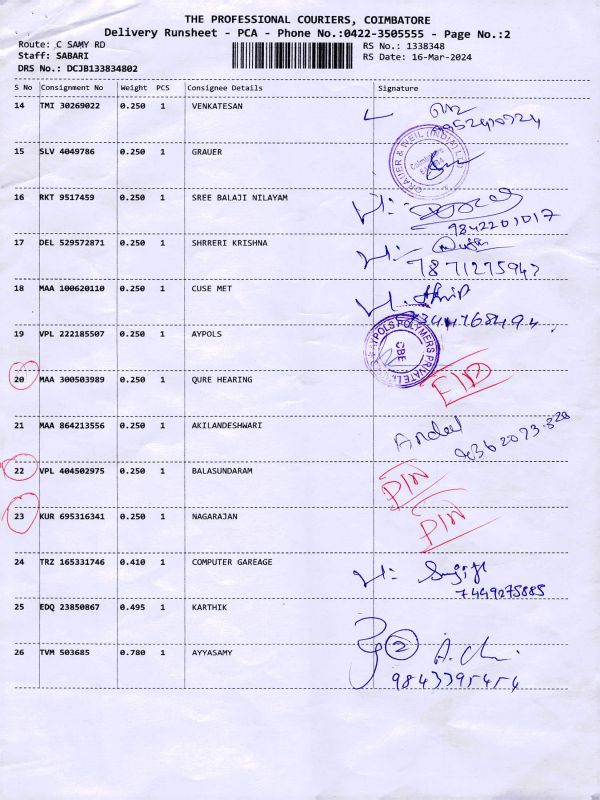 THE PROFESSIONAL COURIERS, COIMBATORE
Delivery Runsheet - PCA - Phone No.:0422-3505555 - Page No.:2
Route: C SAMY RD RS No.: 1338348
Staff: SABARI RS Date: 16-Mar-2024
DRS No.: DCJB133834802
S No Consignment No Weight PCS Consignee Details Signature
14 TMI 30269022 0.250 1 VENKATESAN
9952410724
15 SLV 4049786 0.250 1 GRAUER
GRAUER & WEIL (INDIA) Coimbatore
16 RKT 9517459 0.250 1 SREE BALAJI NILAYAM
9842201017
17 DEL 529572871 0.250 1 SHRRERI KRISHNA
7871275947
18 MAA 100620110 0.250 1 CUSE MET
19 VPL 222185507 0.250 1 AYPOLS
AYPOLS POLYMERS PRIVATE CBE
20 MAA 300503989 0.250 1 QURE HEARING
21 MAA 864213556 0.250 1 AKILANDESHWARI
22 VPL 404502975 0.250 1 BALASUNDARAM
PIN
23 KUR 695316341 0.250 1 NAGARAJAN
PIN
24 TRZ 165331746 0.410 1 COMPUTER GAREAGE
7449275885
25 EDQ 23850867 0.495 1 KARTHIK
2
26 TVM 503685 0.780 1 AYYASAMY
9843395454